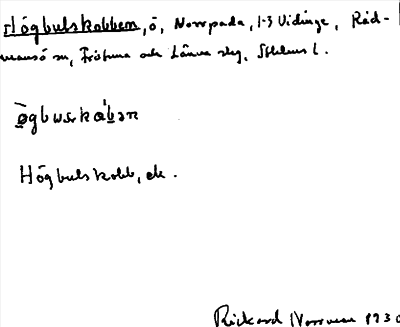 Högbulskobben, ö, Norrpada, 1-3 Vidinge, Råd-
mansö sn, Frötuna och Länna skg, Sthlms l.
ǿgbuskåbən
Högbulskobb, ek.
Rickard 1930